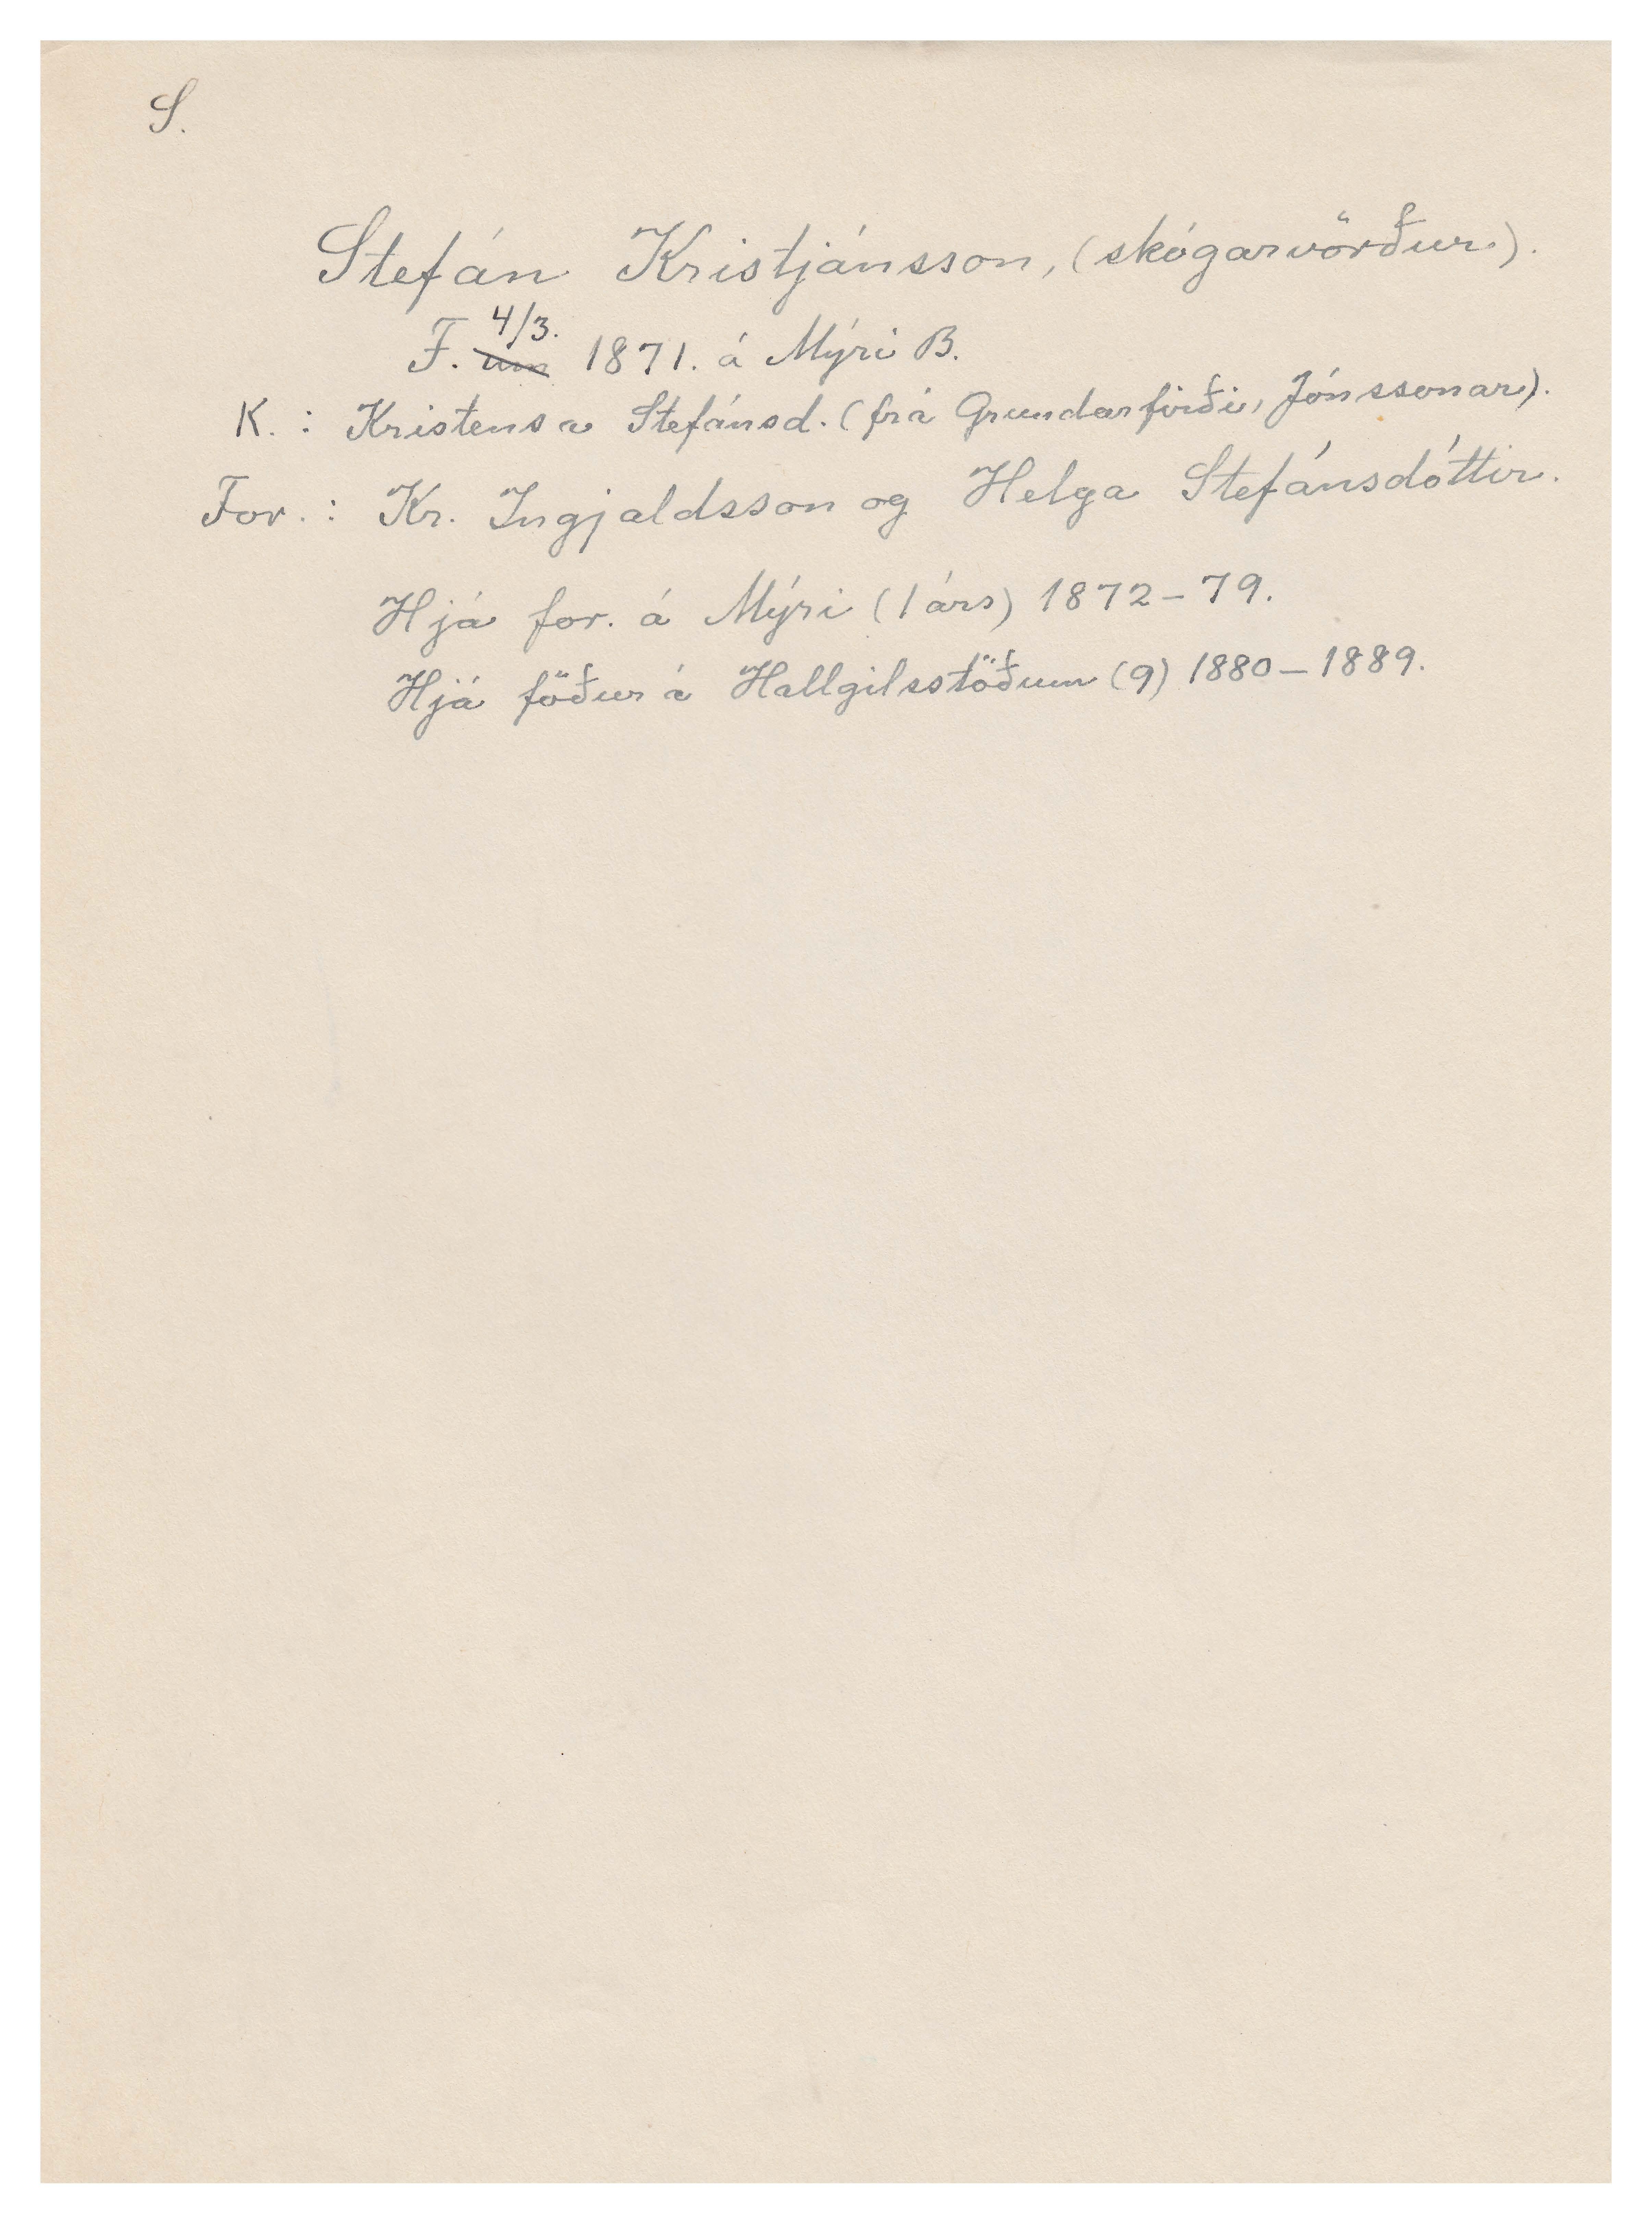 S.
Stefán Kristjánsson, (skógarvörður).
F. 4/3. 1871. á Mýri B.
K. : Kristensa Stefánsd. (frá Grundarfirði, Jónssonar).
For. : Kr. Ingjaldsson og Helga Stefánsdóttir.
Hjá for. á Mýri (1 árs) 1872-79.
Hjá föður á Hallgilsstöðum (9) 1880-1889.